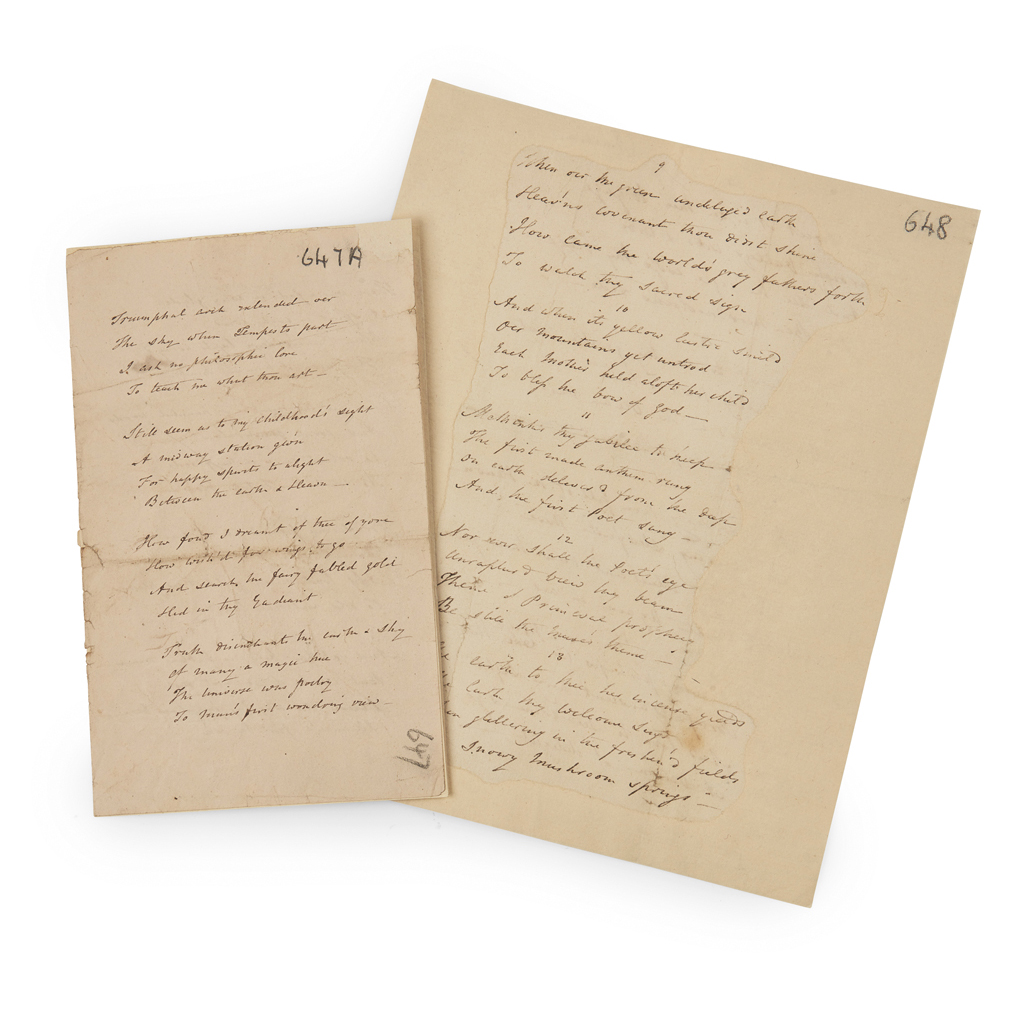 647A
Triumphal arch extended oer
The sky when Tempests part
I ask no philosophic lore
To teach me what thou art —
Still seem as to my childhood's sight
A midway station giv'n
For happy spirits to alight
Between the earth & Heaven —
How fond I dreamt of thee of yore
How wish'd for wings to go
And search the fairy fabled gold
Hid in thy Gradiant
Truth disenchants the earth & sky
Of many a magic hue
The universe was poetry
To man's first wondring view —
647
648
9
When oer the green undeluged earth
Heav'ns covenant thou didst shine
How came the world's grey fathers forth
To watch thy sacred sign
10
And when its yellow lustre smild
Oer mountains yet untrod
Each Mother held aloft her child
To bless the bow of God —
11
Methinks thy jubilee to keep
The first made anthem rung
On earth deliver'd from the deep
And the first Poet sung —
12
Nor ever shall the Poet's eye
Unraptur'd view thy beam
Theme of Primeval prophecy
Be still the Muse's theme —
13
earth to thee her incense yields
Lark thy welcome sings
glittering in the freshen'd fields
Snowy Mushroom springs —